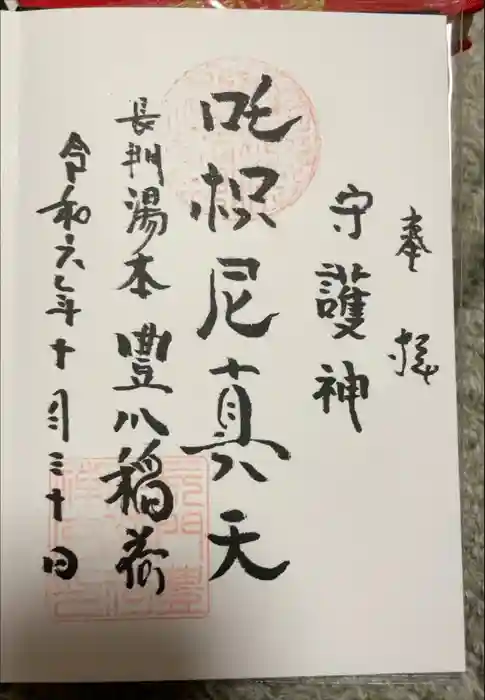 奉拝
守護神
吒枳尼真天
長門湯本 豊川稲荷
令和六年十月三十日